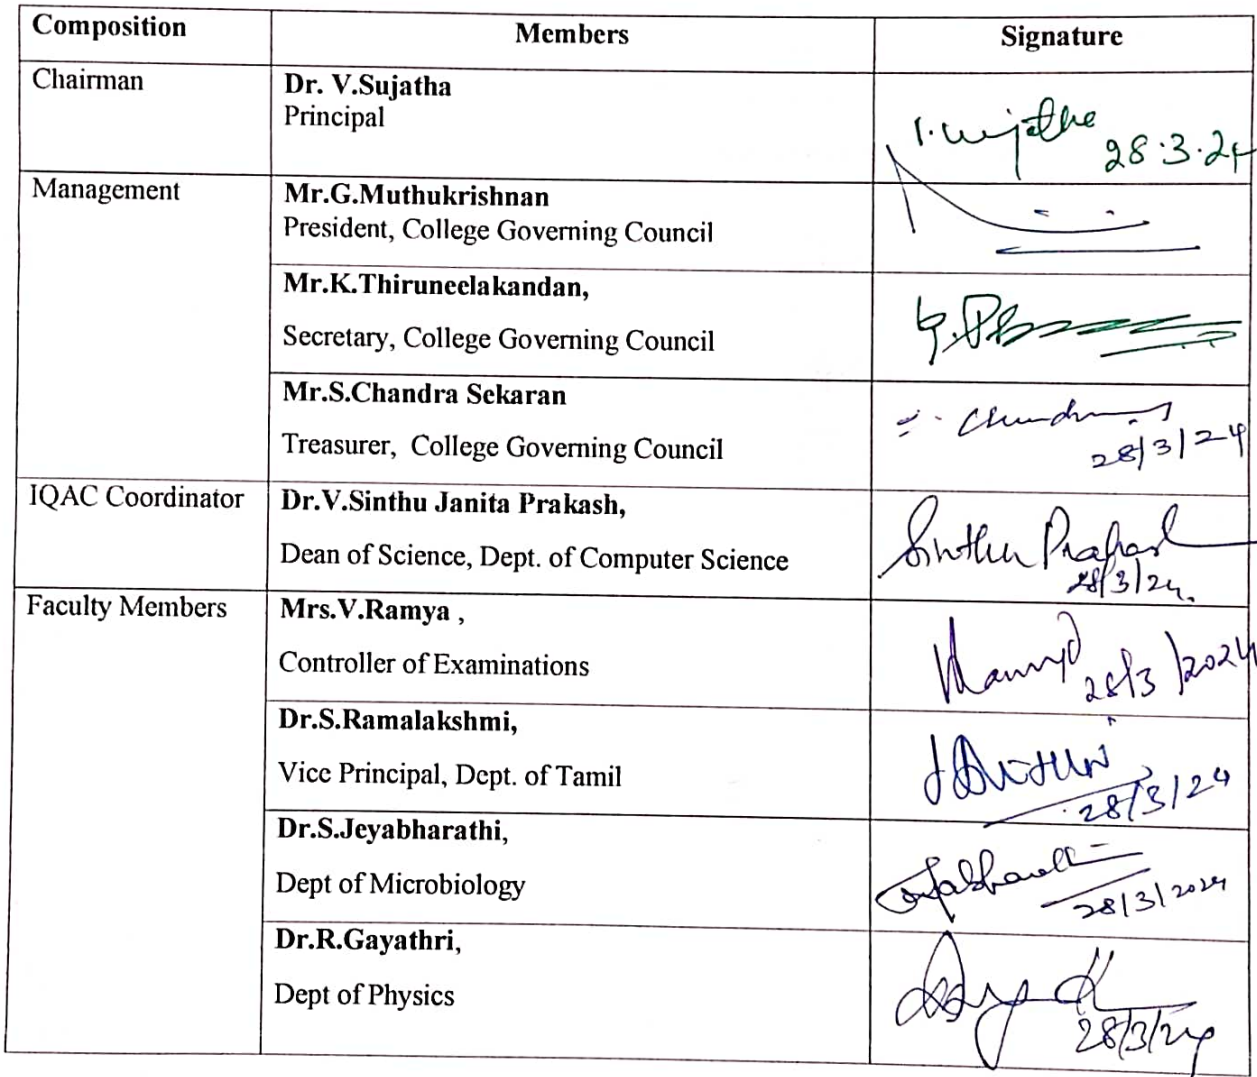 Composition Members Signature
Chairman Dr. V.Sujatha
Principal
28.3.24
Management Mr.G.Muthukrishnan
President, College Governing Council
Mr.K.Thiruneelakandan,
Secretary, College Governing Council
Mr.S.Chandra Sekaran
Treasurer, College Governing Council
28/3/24
IQAC Coordinator Dr.V.Sinthu Janita Prakash,
Dean of Science, Dept. of Computer Science
Sinthu Prakash
28/3/24.
Faculty Members Mrs.V.Ramya ,
Controller of Examinations
28/3/2024
Dr.S.Ramalakshmi,
Vice Principal, Dept. of Tamil
28/3/24
Dr.S.Jeyabharathi,
Dept of Microbiology
28/3/2024
Dr.R.Gayathri,
Dept of Physics
28/3/24